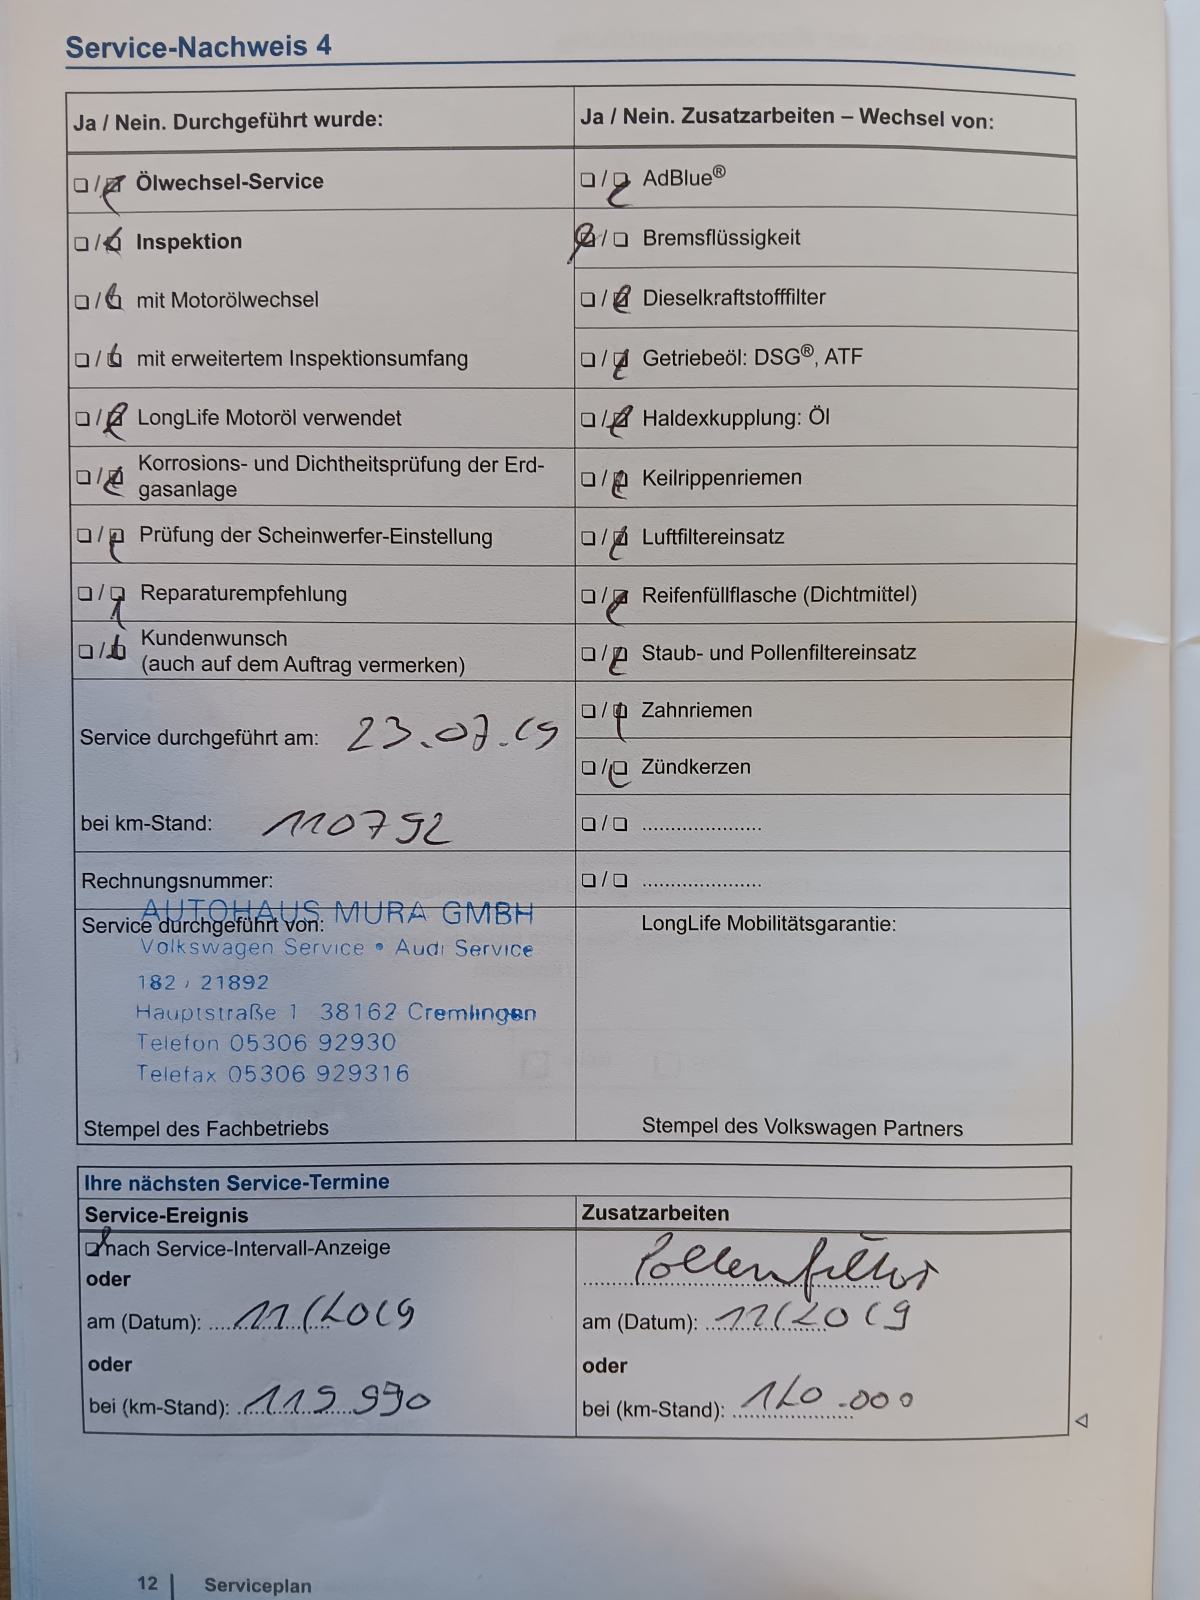 Service-Nachweis 4
Ja / Nein. Durchgeführt wurde:
☐ / ☒ Ölwechsel-Service
☐ / ☒ Inspektion
☐ / ☒ mit Motorölwechsel
☐ / ☒ mit erweitertem Inspektionsumfang
☐ / ☒ LongLife Motoröl verwendet
☐ / ☒ Korrosions- und Dichtheitsprüfung der Erd-
gasanlage
☐ / ☒ Prüfung der Scheinwerfer-Einstellung
☐ / ☒ Reparaturempfehlung
☐ / ☒ Kundenwunsch
(auch auf dem Auftrag vermerken)
Service durchgeführt am: 23.07.19
bei km-Stand: 110792
Rechnungsnummer:
Service durchgeführt von:
AUTOHAUS MURA GMBH
Volkswagen Service • Audi Service
182 / 21892
Hauptstraße 1 38162 Cremlingen
Telefon 05306 92930
Telefax 05306 929316
Stempel des Fachbetriebs
Ja / Nein. Zusatzarbeiten – Wechsel von:
☐ / ☒ AdBlue®
☒ / ☐ Bremsflüssigkeit
☐ / ☒ Dieselkraftstofffilter
☐ / ☒ Getriebeöl: DSG®, ATF
☐ / ☒ Haldexkupplung: Öl
☐ / ☒ Keilrippenriemen
☐ / ☒ Luftfiltereinsatz
☐ / ☒ Reifenfüllflasche (Dichtmittel)
☐ / ☒ Staub- und Pollenfiltereinsatz
☐ / ☒ Zahnriemen
☐ / ☒ Zündkerzen
☐ / ☐ .....................
☐ / ☐ .....................
LongLife Mobilitätsgarantie:
Stempel des Volkswagen Partners
Ihre nächsten Service-Termine
Service-Ereignis
☒ nach Service-Intervall-Anzeige
oder
am (Datum): 11/2019
oder
bei (km-Stand): 119990
Zusatzarbeiten
Pollenfilter
am (Datum): 11/2019
oder
bei (km-Stand): 120.000
12 | Serviceplan